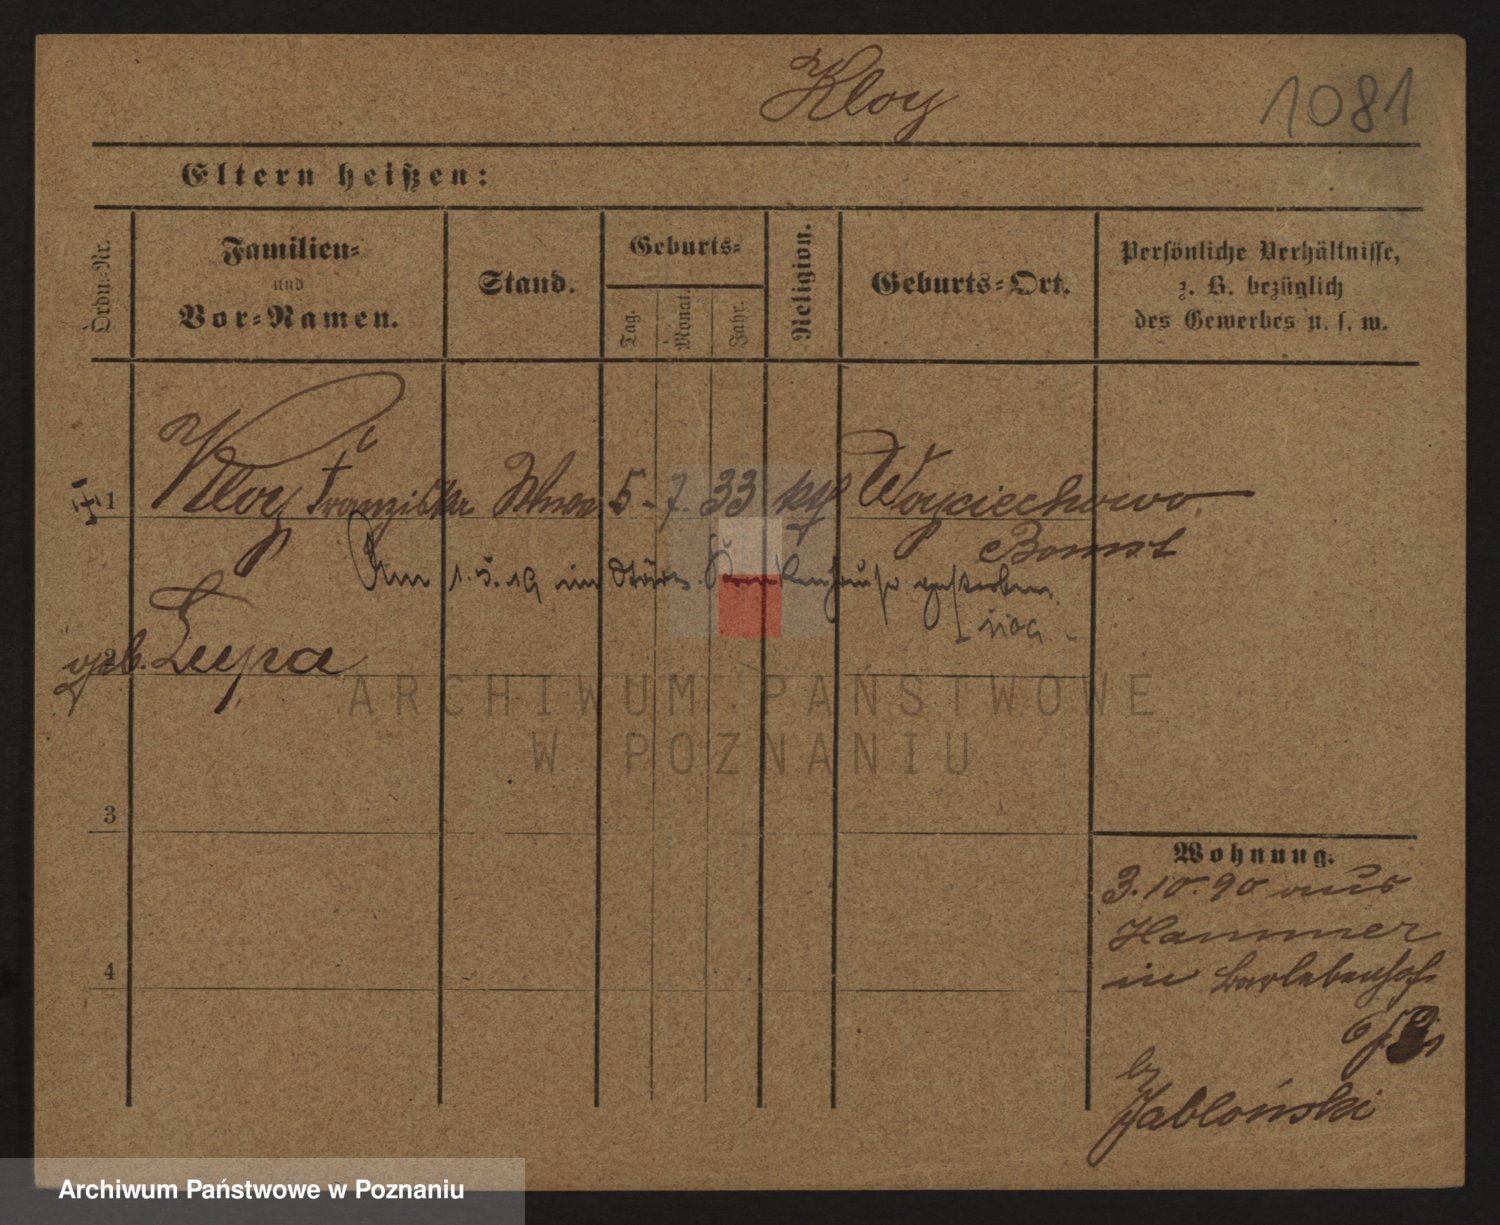 Kloy
1081
Eltern heißen:
Ordn.-Nr.
Familien-
und
Vor-Namen.
Stand.
Geburts-
Tag.
Monat.
Jahr.
Religion.
Geburts-Ort.
Persönliche Verhältnisse,
z. B. bezüglich
des Gewerbes u. s. w.
1 Kloy Franziska Wwe 5. 7. 33 kth Woyciechowo
Bomst
Am 1.5.19 im Städt. Krankenhause gestorben.
2 geb. Lupa
ARCHIWUM PAŃSTWOWE
W POZNANIU
3
Wohnung.
3.10.90 aus
Hammer
4
in
b/
Jabloński
Archiwum Państwowe w Poznaniu